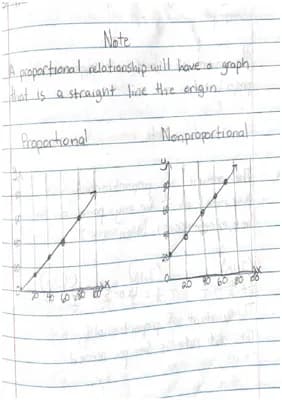 Note
A proportional relationship will have a graph
that is a straight line the origin
Proportional
Nonproportional
y
y
0
20 40 60 80 100 x
0
20 40 60 80 100 x